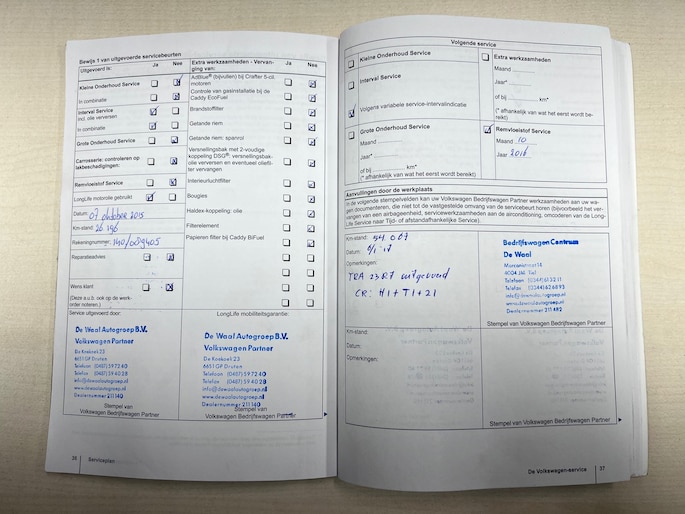 Bewijs 1 van uitgevoerde servicebeurten
Uitgevoerd is: Ja Nee
Kleine Onderhoud Service
In combinatie
Interval Service
incl. olie verversen
In combinatie
Grote Onderhoud Service
Carrosserie: controleren op
lakbeschadigingen:
Remvloeistof Service
LongLife motorolie gebruikt
Datum: 07 oktober 2015
Km-stand: 26 196
Rekeningnummer: 140/009405
Reparatieadvies
Wens klant
(Deze a.u.b. ook op de werk-
order noteren.)
Extra werkzaamheden - Vervan-
ging van: Ja Nee
AdBlue® (bijvullen) bij Crafter 5-cil.
motoren
Controle van gasinstallatie bij de
Caddy EcoFuel
Brandstoffilter
Getande riem
Getande riem: spanrol
Versnellingsbak met 2-voudige
koppeling DSG®: versnellingsbak-
olie verversen en eventueel oliefil-
ter vervangen
Interieurluchtfilter
Bougies
Haldex-koppeling: olie
Filterelement
Papieren filter bij Caddy BiFuel
Service uitgevoerd door:
De Waal Autogroep B.V.
Volkswagen Partner
De Koekoek 23
6651 GP Druten
Telefoon (0487) 59 72 40
Telefax (0487) 59 40 28
info@dewaalautogroep.nl
www.dewaalautogroep.nl
Dealernummer 211 140
Stempel van
Volkswagen Bedrijfswagen Partner
LongLife mobiliteitsgarantie:
De Waal Autogroep B.V.
Volkswagen Partner
De Koekoek 23
6651 GP Druten
Telefoon (0487) 59 72 40
Telefax (0487) 59 40 28
info@dewaalautogroep.nl
www.dewaalautogroep.nl
Dealernummer 211 140
Stempel van
Volkswagen Bedrijfswagen Partner
36 Serviceplan
Volgende service
Kleine Onderhoud Service
Interval Service
Volgens variabele service-intervalindicatie
Grote Onderhoud Service
Maand
Jaar*
of bij km*
(* afhankelijk van wat het eerst wordt bereikt)
Extra werkzaamheden
Maand
Jaar*
of bij km*
(* afhankelijk van wat het eerst wordt be-
reikt)
Remvloeistof Service
Maand 10
Jaar 2016
Aanvullingen door de werkplaats
In de volgende stempelvelden kan uw Volkswagen Bedrijfswagen Partner werkzaamheden aan uw wa-
gen documenteren, die niet tot de vastgestelde omvang van de servicebeurt horen (bijvoorbeeld het ver-
vangen van een airbageenheid, servicewerkzaamheden aan de airconditioning, omcoderen van de Long-
Life Service naar Tijd- of afstandhankelijke Service).
Km-stand:
Datum:
Opmerkingen:
TRA 23R7 uitgevoerd
CR: H1+T1+21
Bedrijfswagen Centrum
De Waal
Stempel van Volkswagen Bedrijfswagen Partner
Km-stand:
Datum:
Opmerkingen:
Stempel van Volkswagen Bedrijfswagen Partner
De Volkswagen-service 37